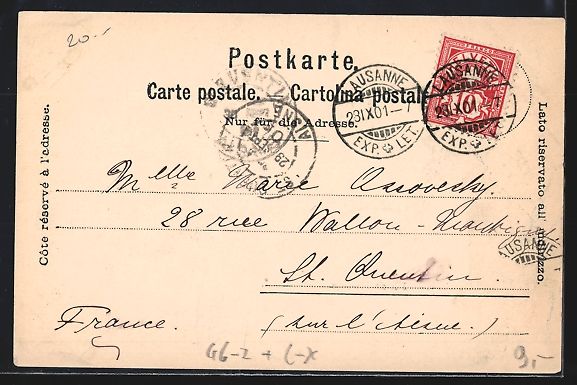 20.-
Postkarte.
Carte postale. Cartolina postale
Nur für die Adresse.
Côte réservé à l'adresse.
Lato riservato all' indirizzo.
LAUSANNE
23 IX 01 - 7
EXP. LET.
LAUSANNE
23 IX 01 - 7
EXP. LET.
USANNE
Mlle Marie Ossovesky.
28 rue Wallon-
St. Quentin.
France. (sur l'Aisne.)
9,-